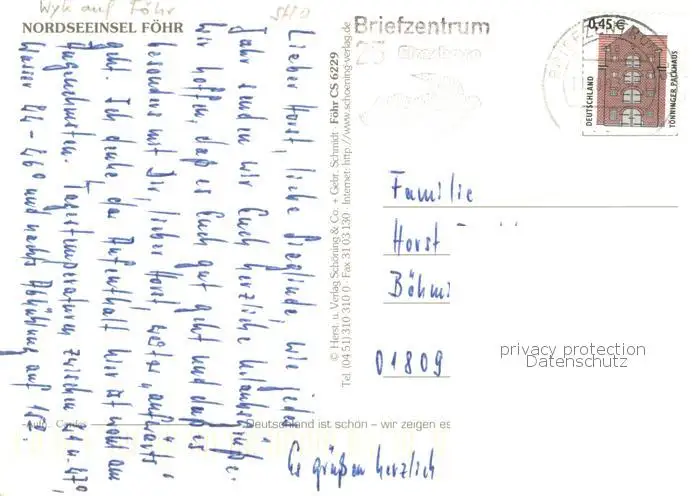 Wyk auf Föhr
NORDSEEINSEL FÖHR
Lieber Horst, liebe Sieglinde, wie jedes
Jahr senden wir Euch herzliche Urlaubsgrüße.
Wir hoffen, daß es Euch gut geht und daß es
besonders mit Dir, lieber Horst, weiter "aufwärts"
geht. Ich denke der Aufenthalt hier ist wohl am
angenehmsten. Tagestemperaturen zwischen
Wasser und nachts Abkühlung auf
Es grüßen herzlich
Auto Cards
Deutschland ist schön – wir zeigen es
© Herst. u. Verlag Schöning & Co. + Gebr. Schmidt · Föhr CS 6229
Tel. (04 51) 310 310 0 · Fax 31 03 130 · Internet: http://www.schoening-verlag.de
Briefzentrum
25
0,45 €
DEUTSCHLAND
TÖNNINGER PACKHAUS
Familie
Horst
Böhm
01809
privacy protection
Datenschutz